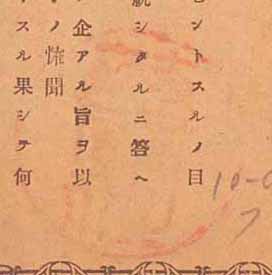 ントスルノ目
シタルニ答ヘ
企アル旨ヲ以
ノ恠聞
スル果シテ何
10-